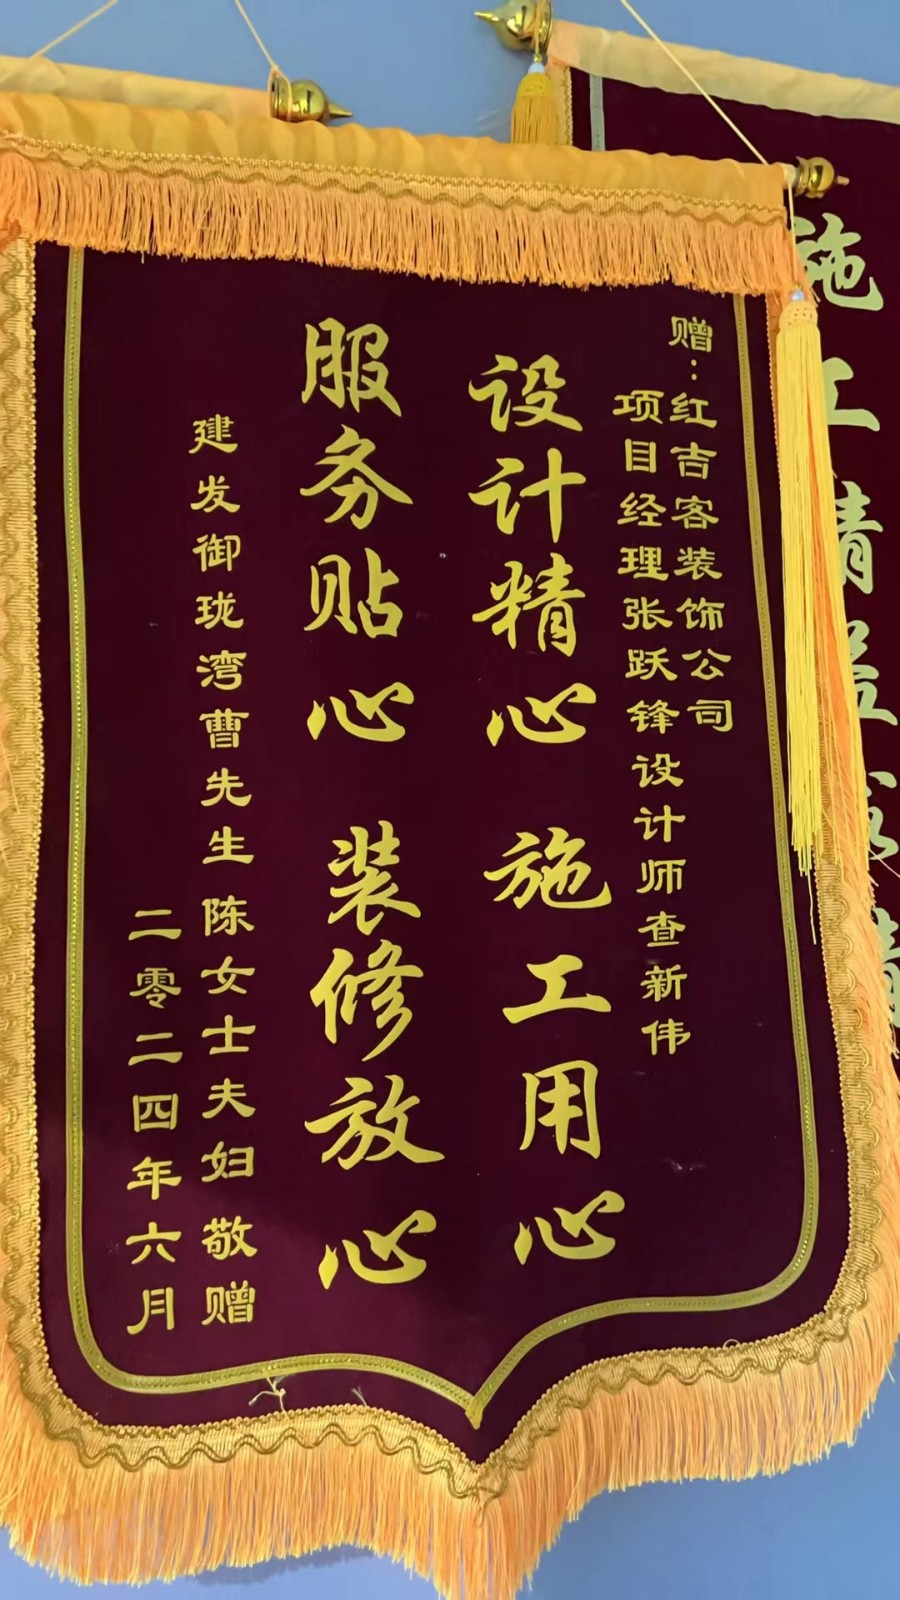 赠:红吉客装饰公司
项目经理张跃锋设计师查新伟
设计精心 施工用心
服务贴心 装修放心
建发御珑湾曹先生陈女士夫妇 敬赠
二零二四年六月
施工精